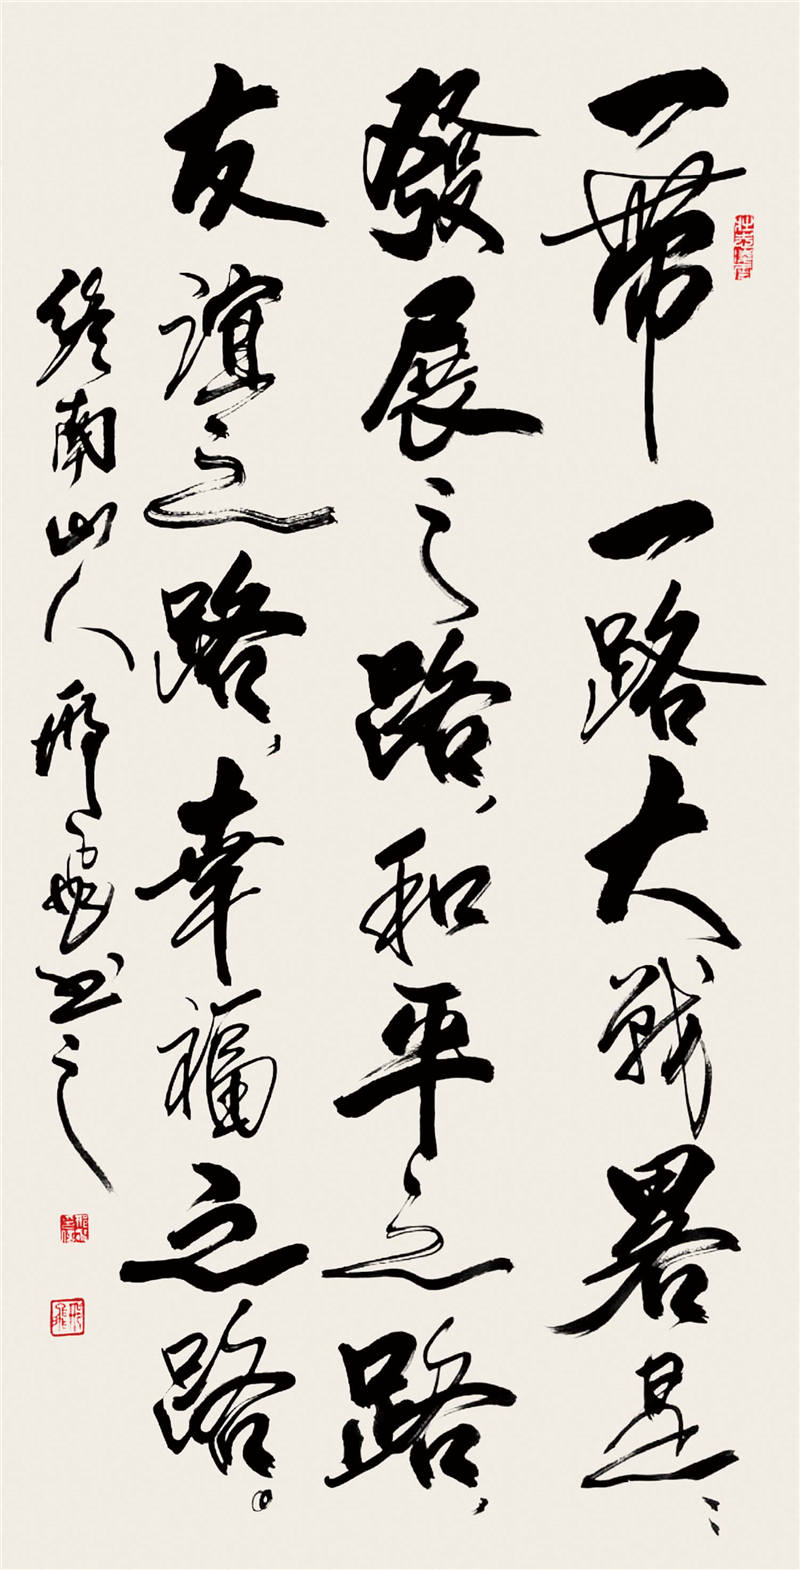 一帶一路大戰畧是：
發展之路，和平之路，
友誼之路，幸福之路。
終南山人邢飛书之
邢飛